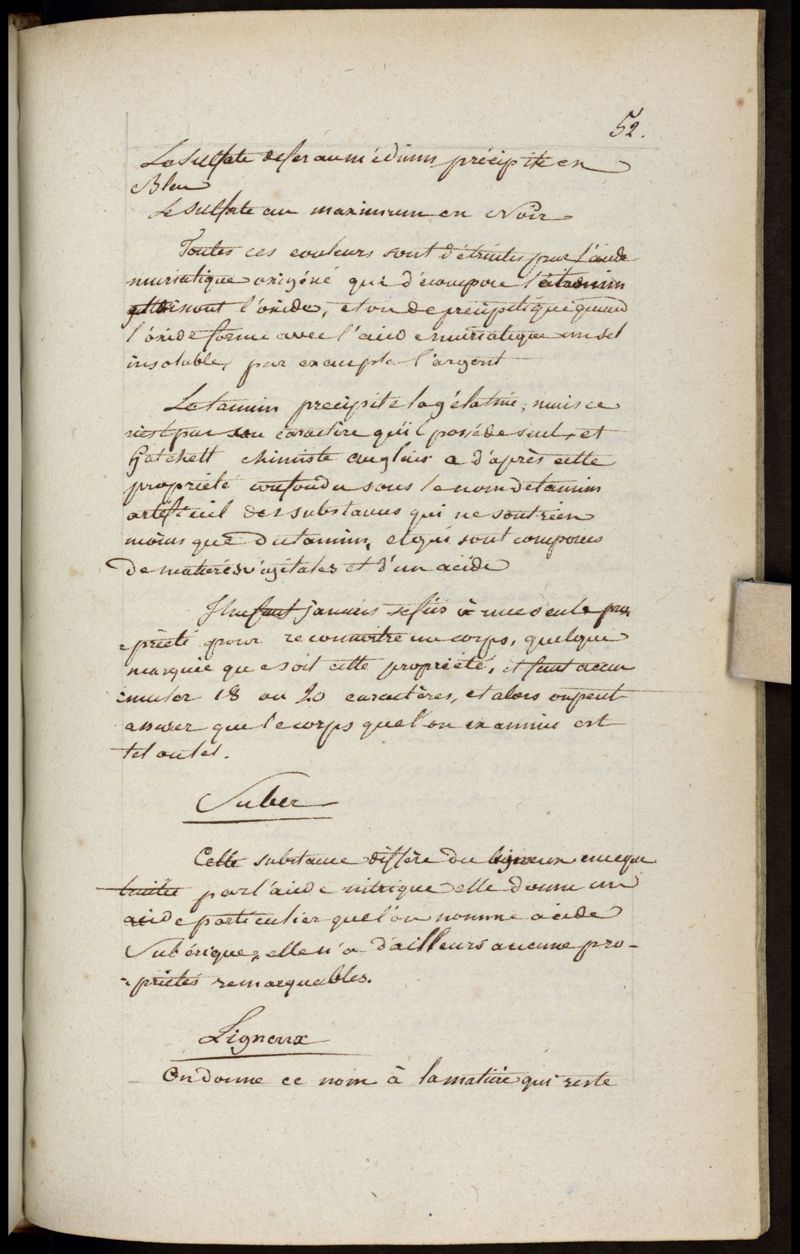 52.
Le sulfate de fer au médium précipite en
Bleu
Le sulfate au maximum en Noir
Toutes ces couleurs sont détruites par l'acide
muriatique oxigéné qui décompose le tannin
et dissout l'oxide, et on de precipité que quand
l'oxide forme avec l'acide muriatique un sel
insoluble, par exemple l'argent
Le tannin precipite la gélatine, mais ce
n'est pas un caractère qu'il possède seul, et
Hatchett chimiste anglais a d'après cette
propriété confondu sous le nom de tannin
artificiel des substances qui ne sont rien
moins que du tannin, et qui sont composées
de matières végétales et d'un acide
Il ne faut jamais se fier à une seule pro
=priété pour reconnoitre un corps, quelque
marquée que soit cette propriété, il faut accu
=muler 18 ou 20 caractères, et alors on peut
assurer que le corps que l'on examine est
tel ou tel.
Suber
Cette substance diffère du ligneux en ce que
traitée par l'acide nitrique elle donne un
acide particulier que l'on nomme acide
Subérique, elle n'a d'ailleurs aucune pro-
=priétés remarquables.
Ligneux
On donne ce nom à la matière qui reste